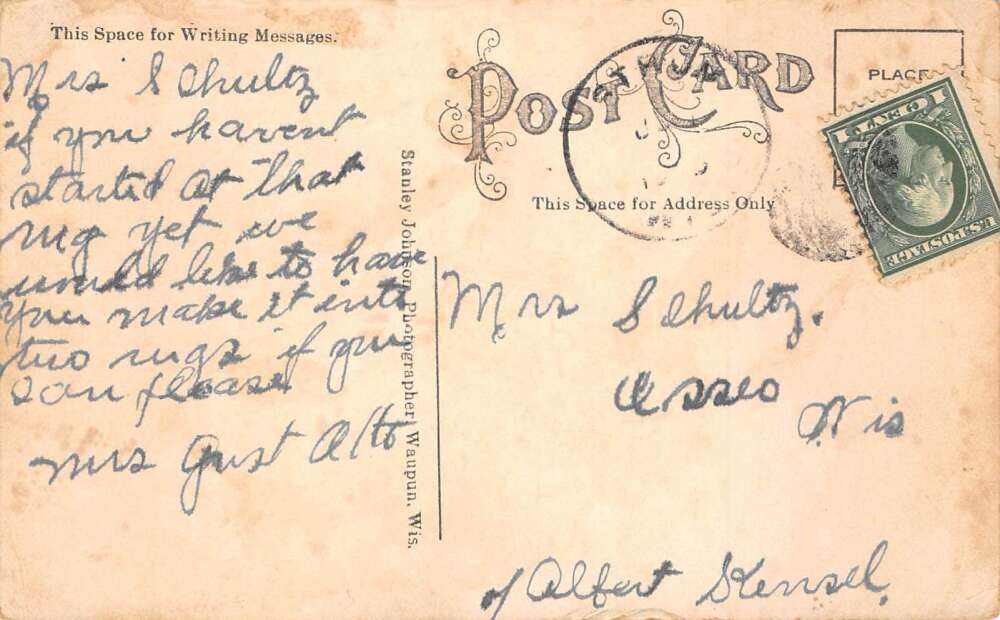 This Space for Writing Messages.
Mrs Schultz
if you havent
started at that
rug yet we
would like to have
you make it into
two rugs if you
can please
mrs Gust Otto
Stanley Johnson, Photographer, Waupun, Wis.
POST CARD
This Space for Address Only
PLACE
1 CENT 1
U.S. POSTAGE
Mrs Schultz.
Osseo
Wis
Albert